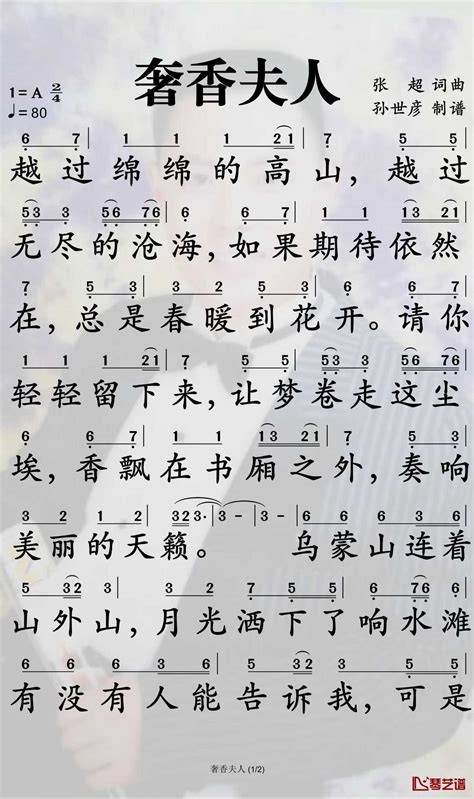 奢香夫人
1=A 2/4
♩=80
张 超 词曲
孙世彦 制谱
6 7 | 1 1 1 21 | 7 5 5
越过绵绵的高山，越过
53 3 56 76 | 5 5 53 21
无尽的沧海，如果期待依然
7 5 3 | 5 5 3 1 3 6 7
在，总是春暖到花开。请你
1 1 1 21 | 7 5 5 53 3 56 76
轻轻留下来，让梦卷走这尘
6 6 7 | 1 1 1 13 21 | 7 5 5
埃，香飘在书厢之外，奏响
3 2 1 2 323· 3· 3 6 6 6 6
美丽的天籁。 乌蒙山连着
5 32 3 | 6 6 1 2 7 5 6
山外山，月光洒下了响水滩
6 6 6 6 5 32 3 1 1
有没有人能告诉我，可是
奢香夫人 (1/2)
琴艺谱